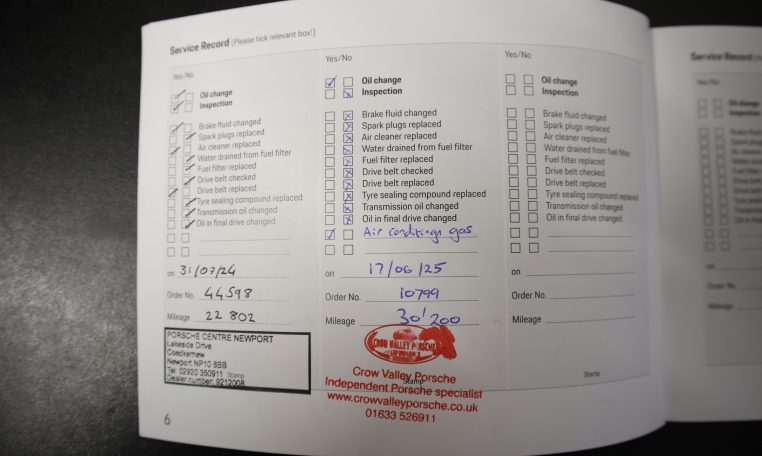 Service Record (Please tick relevant box!)
Yes/No
Oil change
Inspection
Brake fluid changed
Spark plugs replaced
Air cleaner replaced
Water drained from fuel filter
Fuel filter replaced
Drive belt checked
Drive belt replaced
Tyre sealing compound replaced
Transmission oil changed
Oil in final drive changed
on 31/07/24
Order No. 44598
Mileage 22 802
PORSCHE CENTRE NEWPORT
Lakeside Drive
Coedkernew
Newport NP10 8BB
Tel: 02920 350911 Stamp
Dealer number: 9212008
6
Yes/No
Oil change
Inspection
Brake fluid changed
Spark plugs replaced
Air cleaner replaced
Water drained from fuel filter
Fuel filter replaced
Drive belt checked
Drive belt replaced
Tyre sealing compound replaced
Transmission oil changed
Oil in final drive changed
Air conditings gas
on 17/06/25
Order No. 10799
Mileage 30'200
CROW VALLEY PORSCHE
Crow Valley Porsche
Stamp
Independent Porsche specialist
www.crowvalleyporsche.co.uk
01633 526911
Yes/No
Oil change
Inspection
Brake fluid changed
Spark plugs replaced
Air cleaner replaced
Water drained from fuel filter
Fuel filter replaced
Drive belt checked
Drive belt replaced
Tyre sealing compound replaced
Transmission oil changed
Oil in final drive changed
on
Order No.
Mileage
Stamp
Service Record
Yes/No
Oil change
Inspection
on
Order No.
Mileage